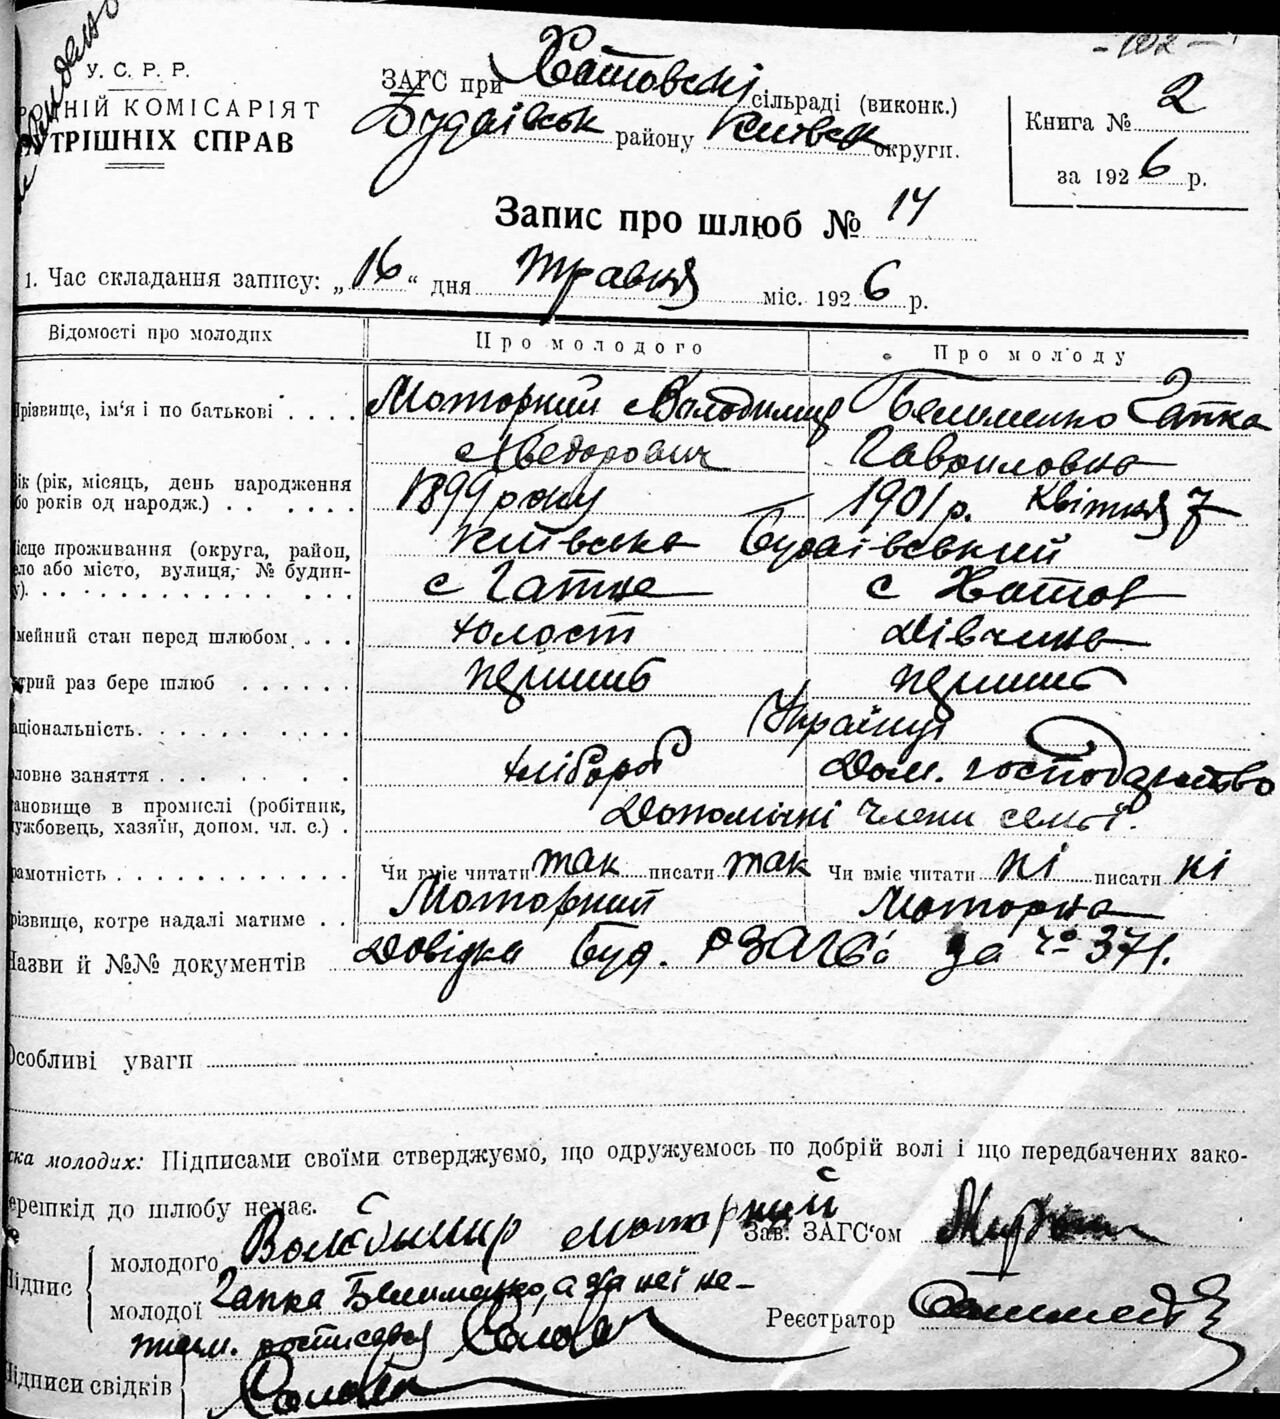 - 102 -
У. С. Р. Р.
РОДНІЙ КОМІСАРІЯТ
УТРІШНІХ СПРАВ
ЗАГС при Хатовскі сільраді (виконк.)
Будаівськ району Київськ округи.
Книга № 2
за 1926 р.
Запис про шлюб № 14
1. Час складання запису: „16“ дня Травня міс. 1926 р.
Відомості про молодих Про молодого Про молоду
Прізвище, ім'я і по батькові . . . . Моторний Володимир Гапка
Хведорович Гавриловна
Вік (рік, місяць, день народження 1899 року 1901 р. Квітня 7
або років од народж.) . . . . . .
Місце проживання (округа, район, Київська Будаівський
село або місто, вулиця, № будин- с Гатне с Хотов
ку). . . . . . . . . . . . .
мейний стан перед шлюбом . . . холост Дівчина
отрий раз бере шлюб . . . . . . перший перший
аціональність. . . . . . . . . . Українці
ловне заняття . . . . . . . хлібороб Дом. господарство
ановище в промислі (робітник, Допомічні члени семьї.
ужбовець, хазяїн, допом. чл. с.) .
рамотність . . . . . . . . . . . . Чи вміє читати так писати так Чи вміє читати ні писати ні
різвище, котре надалі матиме . . Моторний Моторна
Назви й №№ документів Довідка Буд. РЗАГС'а за № 371.
Особливі уваги
ска молодих: Підписами своїми стверджуємо, що одружуємось по добрій волі і що передбачених зако-
перешкід до шлюбу немає.
Підпис молодого Володимир Моторний Зав. ЗАГС'ом
молодої Гапка а за неї не-
письм. росписався Реєстратор
Підписи свідків